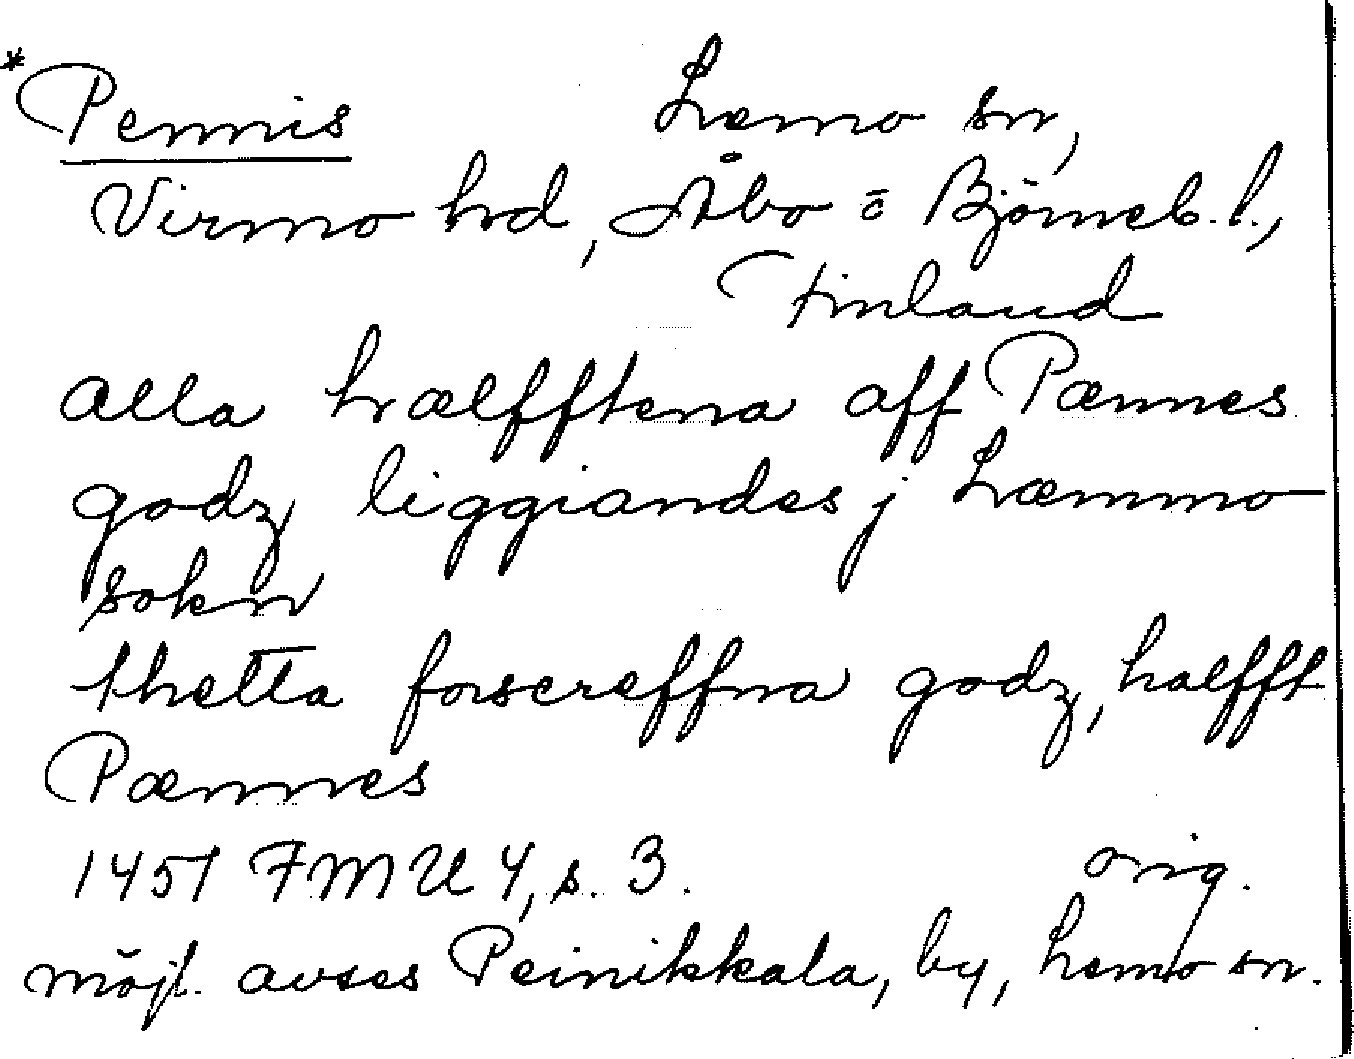 *Pennis Lemo sn,
Virmo hd, Åbo o Björneb. l.,
Finland
alla hælfftena aff Pænnes
godz liggiandes j Læmmo
sokn
thetta forscreffna godz, halfft
Pænnes
1451 FMU 4, s. 3. orig.
möjl. avses Peinikkala, by, Lemo sn.